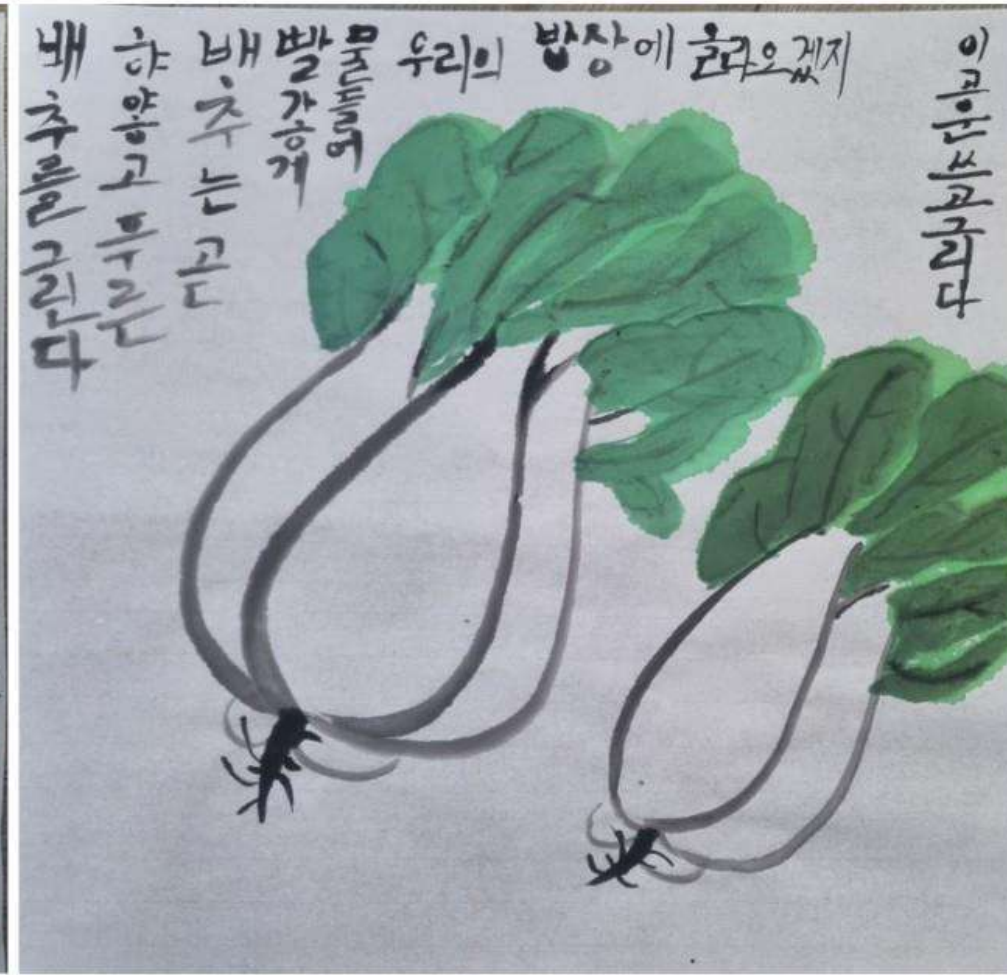 배추를 그린다
하얗고 푸른
배추는 곧
빨갛게
물들어
우리의 밥상에 올라오겠지
이고운 쓰고그리다